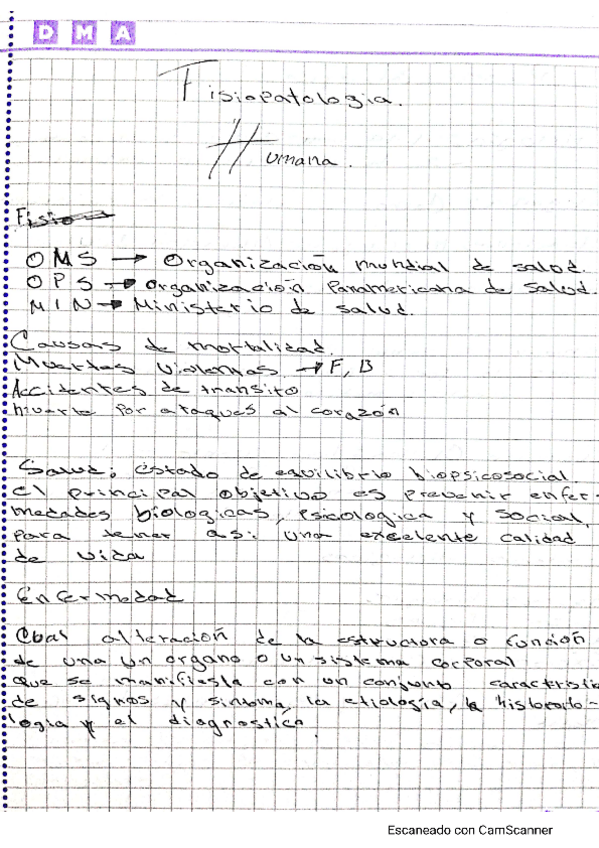 D M A
Fisiopatologia.
Humana.
Fisio
OMS → Organización mundial de salud.
OPS → Organización Panamericana de Salud.
MIN → Ministerio de salud.
Causas de mortalidad.
Muertes violentas → F, B
Accidentes de transito
muerte por ataques al corazón
Salud: estado de equilibrio biopsicosocial.
el principal objetivo es prevenir enfer-
medades biologicas, psicologica y social,
para tener asi una excelente calidad
de vida
Enfermedad
Cual alteración de la estructura o función
de una un organo o un sistema corporal
que se manifiesta con un conjunto caracteristic
de signos y sintoma, la etiología, la
logia y el diagnostico.
Escaneado con CamScanner